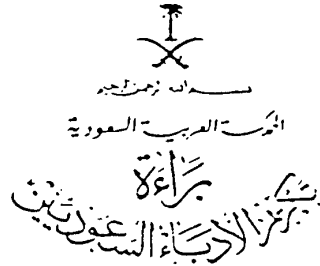 بسم الله الرحمن الرحيم
المملكة العربية السعودية
براءة
تكريم الأدباء السعوديين